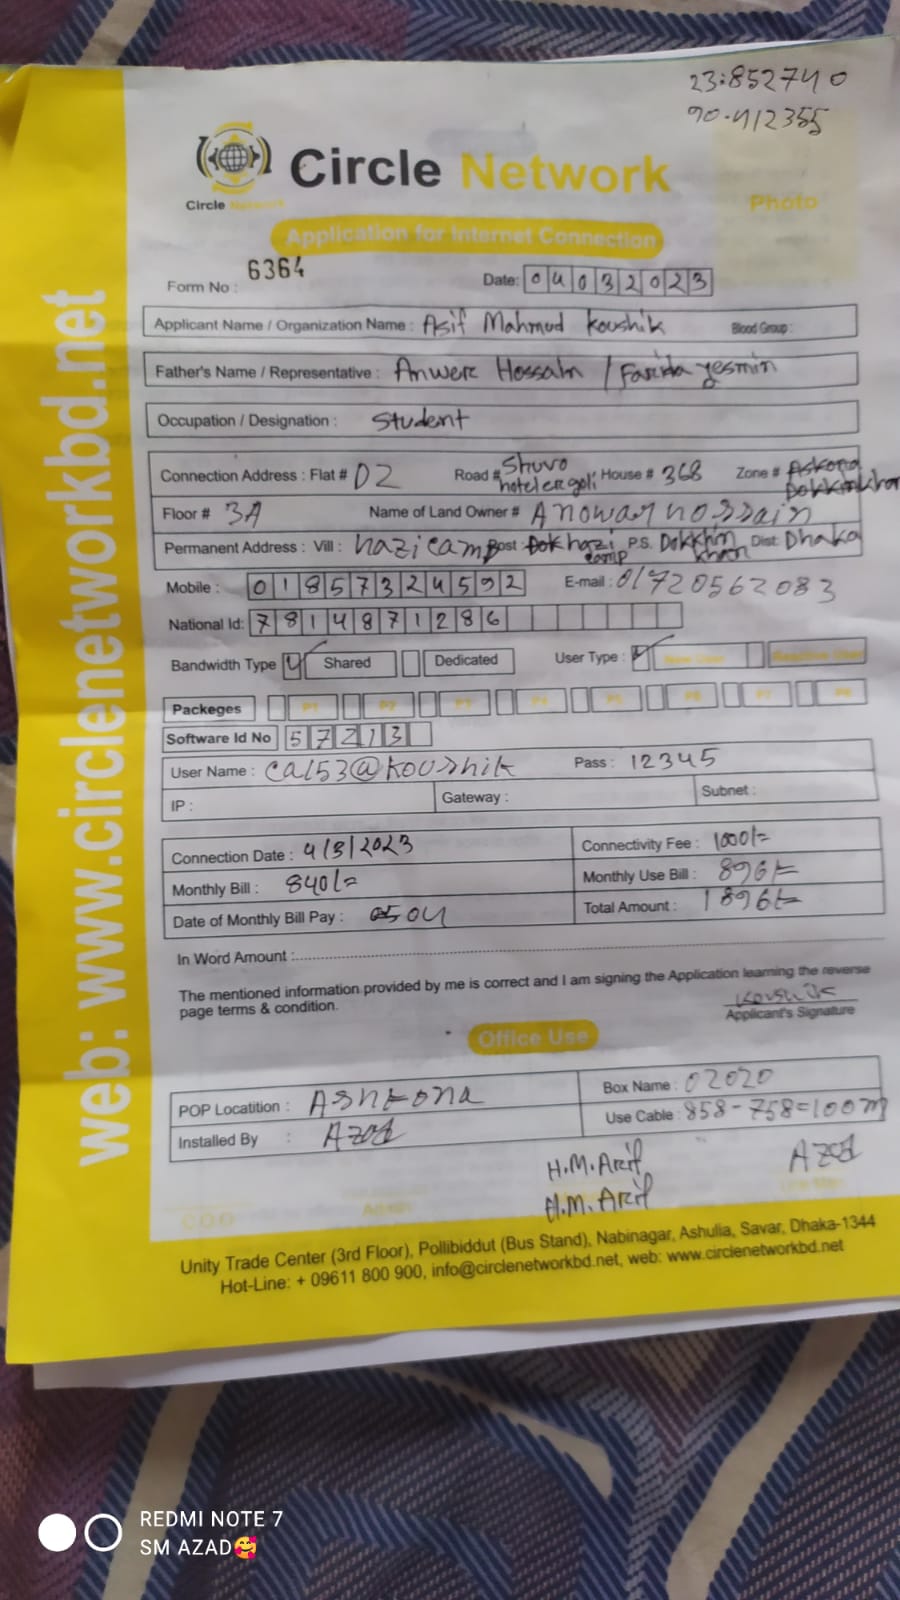 23.852740
90.412355
Circle Network
Circle Network
Photo
Application for Internet Connection
Form No : 6364
Date: 04032023
Applicant Name / Organization Name : Asif Mahmud Koushik Blood Group :
Father's Name / Representative : Anwerc Hossain / Farida yesmin
Occupation / Designation : Student
Connection Address : Flat # D2 Road # Shuvo hoteler goli House # 368 Zone # Askona Dokkinkhan
Floor # 3A Name of Land Owner # Anowar hossain
Permanent Address : Vill : hazicamp Post: hazi camp P.S. Dokkhin khan Dist: Dhaka
Mobile : 01857324592 E-mail : 01720562083
National Id: 7814871286
Bandwidth Type Shared Dedicated User Type : New User
Packeges P1 P2 P3 P4 P5 P6 P7 P8
Software Id No 57213
User Name : ca153@koushik Pass : 12345
IP : Gateway : Subnet :
Connection Date : 4/3/2023 Connectivity Fee : 1000/=
Monthly Bill : 840/= Monthly Use Bill : 896/=
Date of Monthly Bill Pay : 04 Total Amount : 1896/=
In Word Amount :
The mentioned information provided by me is correct and I am signing the Application learning the reverse
page terms & condition.
Koushik
Applicant's Signature
Office Use
POP Locatition : Ashkona Box Name : 02020
Installed By : Azad Use Cable : 858-758=100m
H.M.Arif Azad
H.M.Arif
C.O.O
Unity Trade Center (3rd Floor), Pollibiddut (Bus Stand), Nabinagar, Ashulia, Savar, Dhaka-1344
Hot-Line: + 09611 800 900, info@circlenetworkbd.net, web: www.circlenetworkbd.net
web: www.circlenetworkbd.net
REDMI NOTE 7
SM AZAD🥰